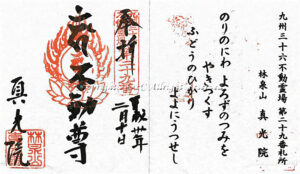 九州三十六不動霊場 第二十九番札所
林泉山 真光院
のりのにわ よろずのつみを
やきつくす
ふどうのひかり
よよにうつせし
奉拝
不動尊
二月十日
真光院